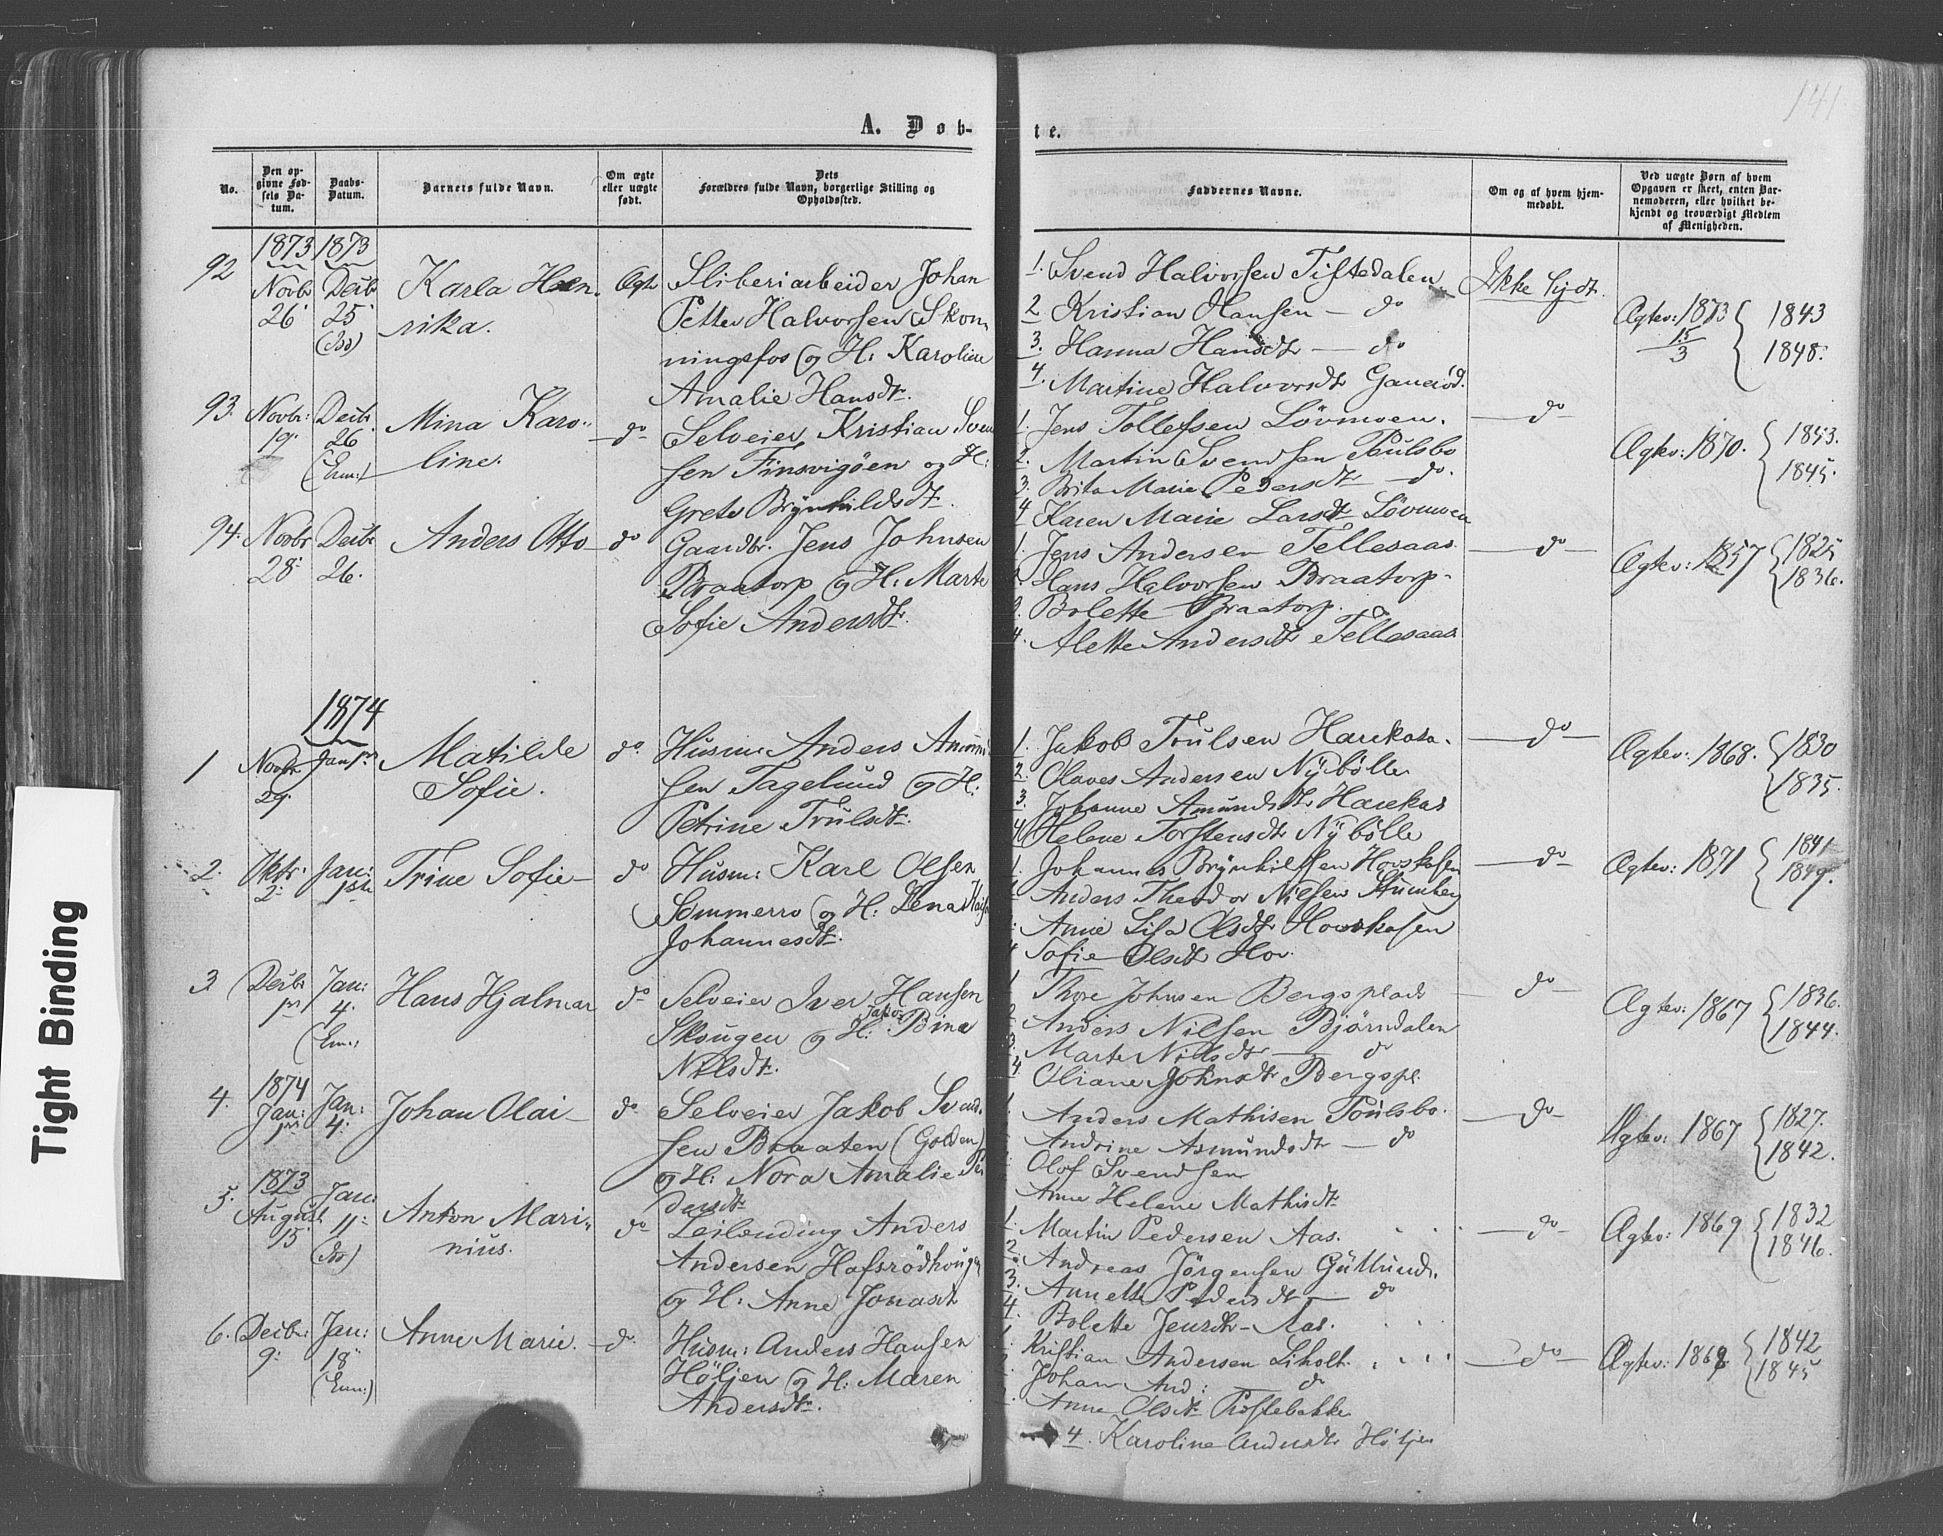 141
A. Døb-
te.
No.
Den op-
givne Fød-
sels Da-
tum.
Daabs-
Datum.
Barnets fulde Navn.
Om ægte
eller uægte
født.
Dets
Forældres fulde Navn, borgerlige Stilling og
Opholdssted.
Faddernes Navne.
Om og af hvem hjem-
medøbt.
Ved uægte Børn af hvem
Opgaven er skeet, enten Bar-
nemoderen, eller hvilket be-
kjendt og troværdigt Medlem
af Menigheden.
92
1873
Novbr
26
1873
Decbr
25
Karla Hen-
rika.
Ægte
Sliberiarbeider Johan
Petter Halvorsen Skon-
ningsfos og H: Karoline
Amalie Hansdtr.
1. Svend Halvorsen Tistedalen
2 Kristian Hansen — do
3. Hanna Hansdtr — do
4. Martine Halvorsdtr Ganerød.
Ikke hjdt.
Ægtev: 1873
15/3
1843
1848.
93.
Novbr:
19
Decbr.
26
(Enn:)
Mina Karo-
line.
do
Selveier Kristian Sven
sen Finsvigöen og H:
Grete Brynhildsdtr.
1. Jens Tollefsen Lövmoen.
2. Martin Svendsen Poulsbo
3. Brita Marie Pedersdtr — do.
4 Karen Marie Larsdtr Lövmoen
do
Ægtev: 1870.
1853.
1845.
94.
Novbr
28
Decbr
26.
Anders Otto
do
Gaardbr. Jens Johnsen
Braatorp og H: Marte
Sofie Andersdtr.
1. Jens Andersen Tellesaas
Hans Halvorsen Braatorp
3. Bolette Braatorp.
4. Alette Andersdtr Tellesaas
do
Ægtev: 1857
1825
1836.
1874
1
Novbr
29.
Jan 1ste
Matilde
Sofie.
do
Husm: Anders Amund
sen Tagelund og H:
Petrine Trulsdtr.
1. Jakob Trulsen Harekasa.
2. Olaves Andersen Nÿbölle
3. Johanne Amundsdtr Harekas
4 Helene Torstensdtr Nÿbölle
do
Ægtev: 1868.
1830
1835.
2.
Oktr:
2:
Jan:
1ste
Trine Sofie
do
Husm: Karl Olsen
Sommerro og H: Lena
Johannesdtr.
1. Johannes Brynhildsen Hovskasen
Anders Theodor Nilsen
Anne Lisa Olsdtr Hovskasen
4 Sofie Olsdtr Hov.
do
Ægtev: 1871
1841
1849.
3
Decbr
1ste
Jan:
4.
(Enn:)
Hans Hjalmar
do
Selveier Iver Hansen
Skougen og H: Jakobine
Nilsdtr.
1 Thore Johnsen Bergsplads
2 Anders Nilsen Bjørndalen
3. Marte Nilsdtr — do
4. Oliane Johnsdtr Bergspl.
do
Ægtev: 1867
1836.
1844.
4.
1874
Jan:
1ste
Jan:
4:
Johan Olai
do
Selveier Jakob Svend-
sen Braaten (Golden)
og H: Nora Amalie Pe
dersdtr
Anders Mathisen Poulsbo.
Andrine Asmundsdtr — do
Olof Svendsen
Anne Helene Mathisdtr
do
Ægtev: 1867
1827.
1842.
5.
1873
August
15
Jan:
11
Anton Mari-
nius.
do
Leilending Anders
Andersen Hafsrödhougen
og H: Anne Jonasdtr
1. Martin Pedersen Aas.
2. Andreas Jörgensen Gullund.
3. Annette Pedersdtr — do
4. Bolette Jensdtr — Aas.
do
Ægtev: 1869.
1832
1846.
6.
Decbr:
9:
Jan:
18
(Enn:)
Anne Marie.
do
Husm: Anders Hansen
Höljen og H: Maren
Andersdtr.
Kristian Andersen Liholt.
Johan And: do
Anne Olsdtr Prostebakke
4. Karoline Andersdtr Höljen
do
Ægtev: 1868
1842
1845
Tight Binding